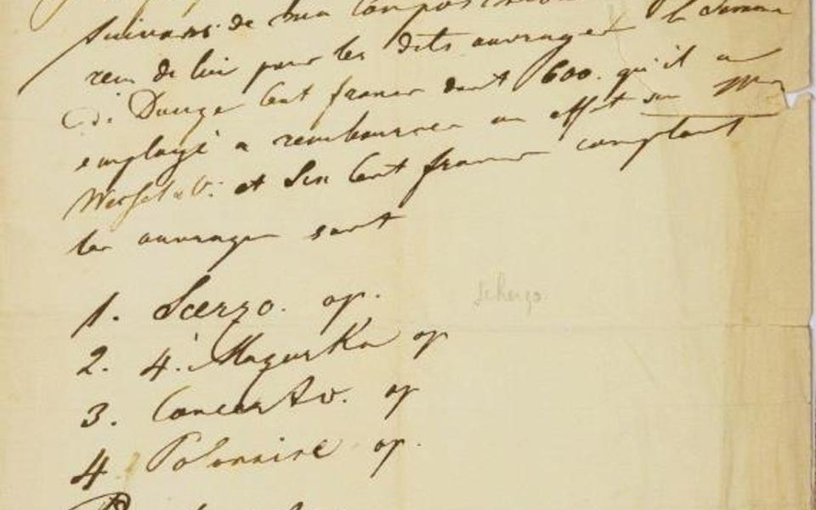 suivans de ma composition
reçu de lui pour les dits ouvrages la somme
de Douze Cent francs dont 600. qu'il a
employé a rembourser un effet sur
Wessel & C: et Six Cent francs comptant
les ouvrages sont
1. Scerzo. op.
scherzo
2. 4. Mazurka op
3. Concerto. op
4 Polonaise op.